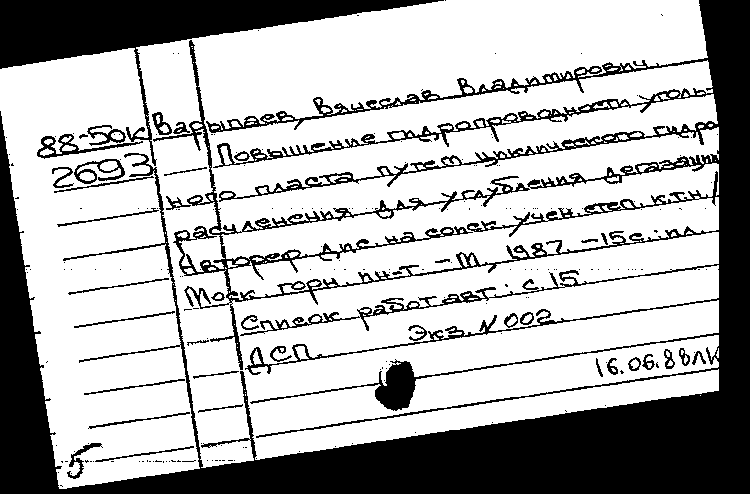 88-50к Варыпаев, Вячеслав Владимирович.
2693 Повышение гидропроводности уголь-
ного пласта путем циклического гидро
расчленения для углубления дегазации
Автореф. дис. на соиск. учен. степ. к.т.н /
Моск. горн. ин-т. - М., 1987. - 15с.: ил.
Список работ авт.: с. 15.
ДСП. Экз. N 002.
16.06.88 ЛК
5